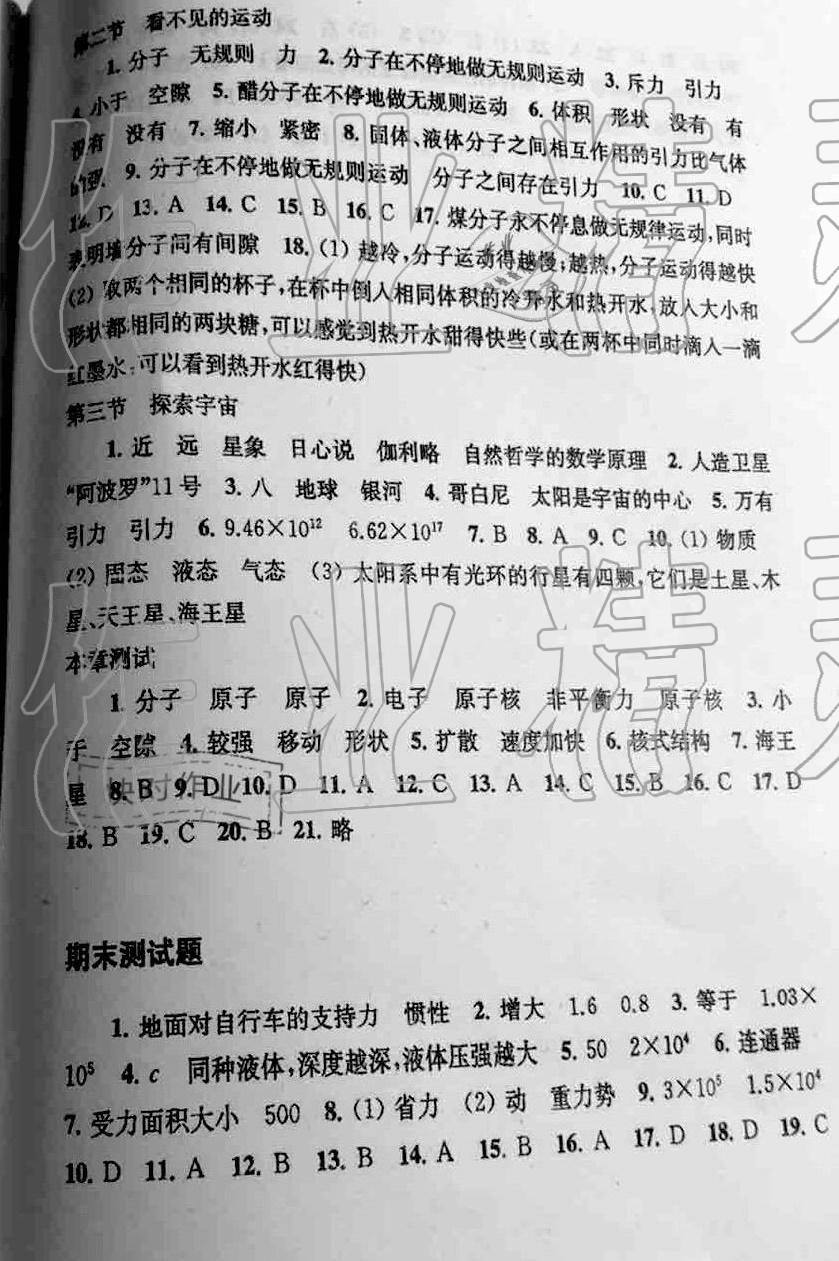 第二节 看不见的运动
1. 分子 无规则 力 2. 分子在不停地做无规则运动 3. 斥力 引力
4. 小于 空隙 5. 醋分子在不停地做无规则运动 6. 体积 形状 没有 有
没有 没有 7. 缩小 紧密 8. 固体、液体分子之间相互作用的引力比气体
的强 9. 分子在不停地做无规则运动 分子之间存在引力 10. C 11. D
12. D 13. A 14. C 15. B 16. C 17. 煤分子永不停息做无规律运动,同时
表明墙分子间有间隙 18. (1) 越冷,分子运动得越慢;越热,分子运动得越快
(2) 取两个相同的杯子,在杯中倒入相同体积的冷开水和热开水,放入大小和
形状都相同的两块糖,可以感觉到热开水甜得快些(或在两杯中同时滴入一滴
红墨水,可以看到热开水红得快)
第三节 探索宇宙
1. 近 远 星象 日心说 伽利略 自然哲学的数学原理 2. 人造卫星
“阿波罗”11号 3. 八 地球 银河 4. 哥白尼 太阳是宇宙的中心 5. 万有
引力 引力 6. 9.46×10¹² 6.62×10¹⁷ 7. B 8. A 9. C 10. (1) 物质
(2) 固态 液态 气态 (3) 太阳系中有光环的行星有四颗,它们是土星、木
星、天王星、海王星
本章测试
1. 分子 原子 原子 2. 电子 原子核 非平衡力 原子核 3. 小
于 空隙 4. 较强 移动 形状 5. 扩散 速度加快 6. 核式结构 7. 海王
星 8. B 9. D 10. D 11. A 12. C 13. C 14. C 15. B 16. C 17. D
18. B 19. C 20. B 21. 略
期末测试题
1. 地面对自行车的支持力 惯性 2. 增大 1.6 0.8 3. 等于 1.03×
10⁵ 4. c 同种液体,深度越深,液体压强越大 5. 50 2×10⁴ 6. 连通器
7. 受力面积大小 500 8. (1) 省力 (2) 动 重力势 9. 3×10⁵ 1.5×10⁴
10. D 11. A 12. B 13. B 14. A 15. B 16. A 17. D 18. D 19. C
作业精灵
作业精灵
快对作业